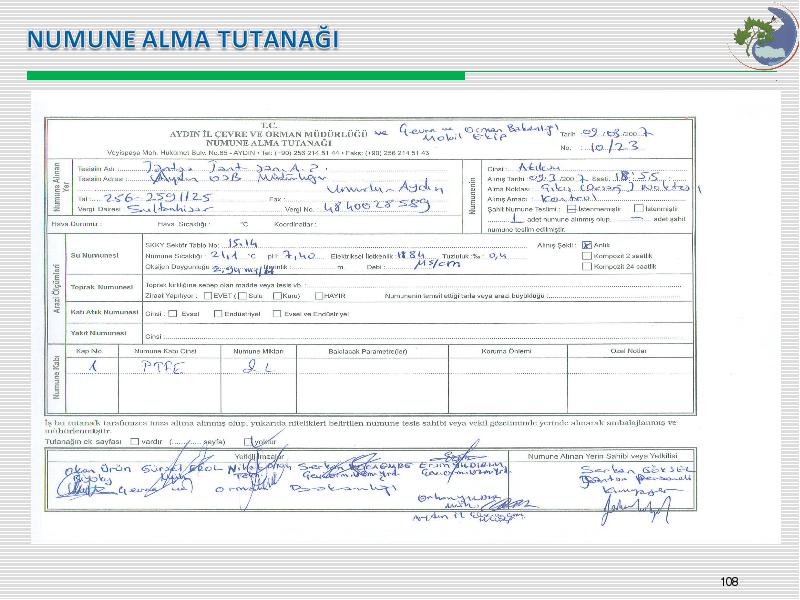 NUMUNE ALMA TUTANAĞI
T.C.
AYDIN İL ÇEVRE VE ORMAN MÜDÜRLÜĞÜ ve Çevre ve Orman Bakanlığı
Mobil Ekip
NUMUNE ALMA TUTANAĞI
Tarih : 09/03/2007
No. : 10/23
Veysipaşa Mah. Hükümet Bulv. No:85 - AYDIN • Tel: (+90) 256 214 51 44 • Faks: (+90) 256 214 51 43
Numune Alınan Yer
Tesisin Adı :
Tesisin Adresi : Aydın OSB Müdürlüğü
Umurlu - Aydın
Tel : 256-2591125 Fax :
Vergi Dairesi Sultanhisar Vergi No.: 4840028589
Hava Durumu : Hava Sıcaklığı : °C Koordinatlar :
Numunenin
Cinsi : Atıksu
Alınış Tarihi 09.3./2007 Saati 18:55
Alma Noktası : Çıkış (Deşarj) Noktası
Alınış Amacı : Kontrol
Şahit Numune Teslimi : İstenmemiştir İstenmiştir
1 adet numune alınmış olup, — adet şahit
numune teslim edilmiştir.
Arazi Ölçümleri
Su Numunesi
SKKY Sektör Tablo No : 15.14
Numune Sıcaklığı : 21,1 °C pH : 7,40 Elektriksel İletkenlik : 1884 Tuzluluk ‰ : 0,4
Oksijen Doygunoğu 2,94 mg/lt Derinlik : m. Debi : µs/cm
Alınış Şekli : Anlık
Kompozit 2 saatlik
Kompozit 24 saatlik
Toprak Numunesi
Toprak kirliliğine sebep olan madde veya tesis vb. :
Ziraat Yapılıyor : EVET ( Sulu Kuru) HAYIR Numunenin temsil ettiği tarla veya arazi büyüklüğü :
Katı Atık Numunesi Cinsi : Evsel Endüstriyel Evsel ve Endüstriyel
Yakıt Numunesi Cinsi :
Numune Kabı
Kap No. Numune Kabı Cinsi Numune Miktarı Bakılacak Parametre(ler) Koruma Önlemi Özel Notlar
1 PTFE 2 L
İş bu tutanak tarafımızca imza altına alınmış olup, yukarıda nitelikleri belirtilen numune tesis sahibi veya vekil gözetiminde yerinde alınarak ambalajlanmış ve
mühürlenmiştir.
Tutanağın ek sayfası vardır (..........sayfa) yoktur
Yetkili İmzalar
Numune Alınan Yerin Sahibi veya Yetkilisi
Okan Ürün Gürsel EROL
Biyolog
Çevre ve Orman Bakanlığı
Serkan GÖKSEL
Kimyager
108